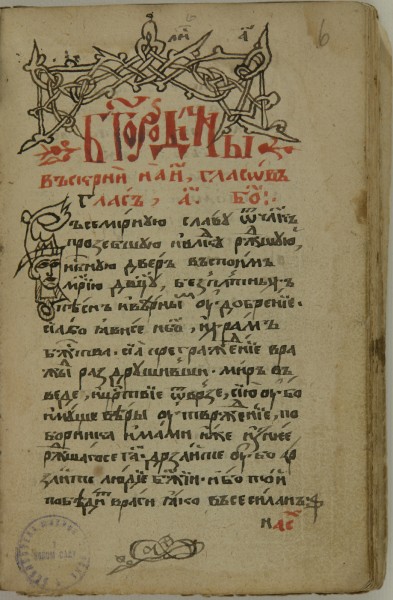 6
Бг҃ородичны
въскрⷭ҇ни на ѿ, гласовъ
Гласъ, а҃. Бо҃:
Въсемирную славу ѿ чл҃къ
прозебшую и влⷣку рⷤшую,
нбⷭ҇ную дверъ въспоимъ
мр҃ію дв҃цу, безплътныⷯ
пѣснь и вѣрнымъ оудобренїе.
сїа бо ꙗвисе нб҃о, и храмъ
бжⷭ҇тва. сїа прѣгражденїе вра
жⷣы раздрушивши. миръ въ
веде, и црⷭ҇твїе ѿврьзе, сїю оубо
имуще вѣры оутвръженїе, по
борника имамы иже из нее
рⷤшагосе га҃. дрьзаите оубо дрь
заите людїе бж҃їи. ибо тои
побѣдит враги ꙗко въсесиланъ:
наⷭ҇